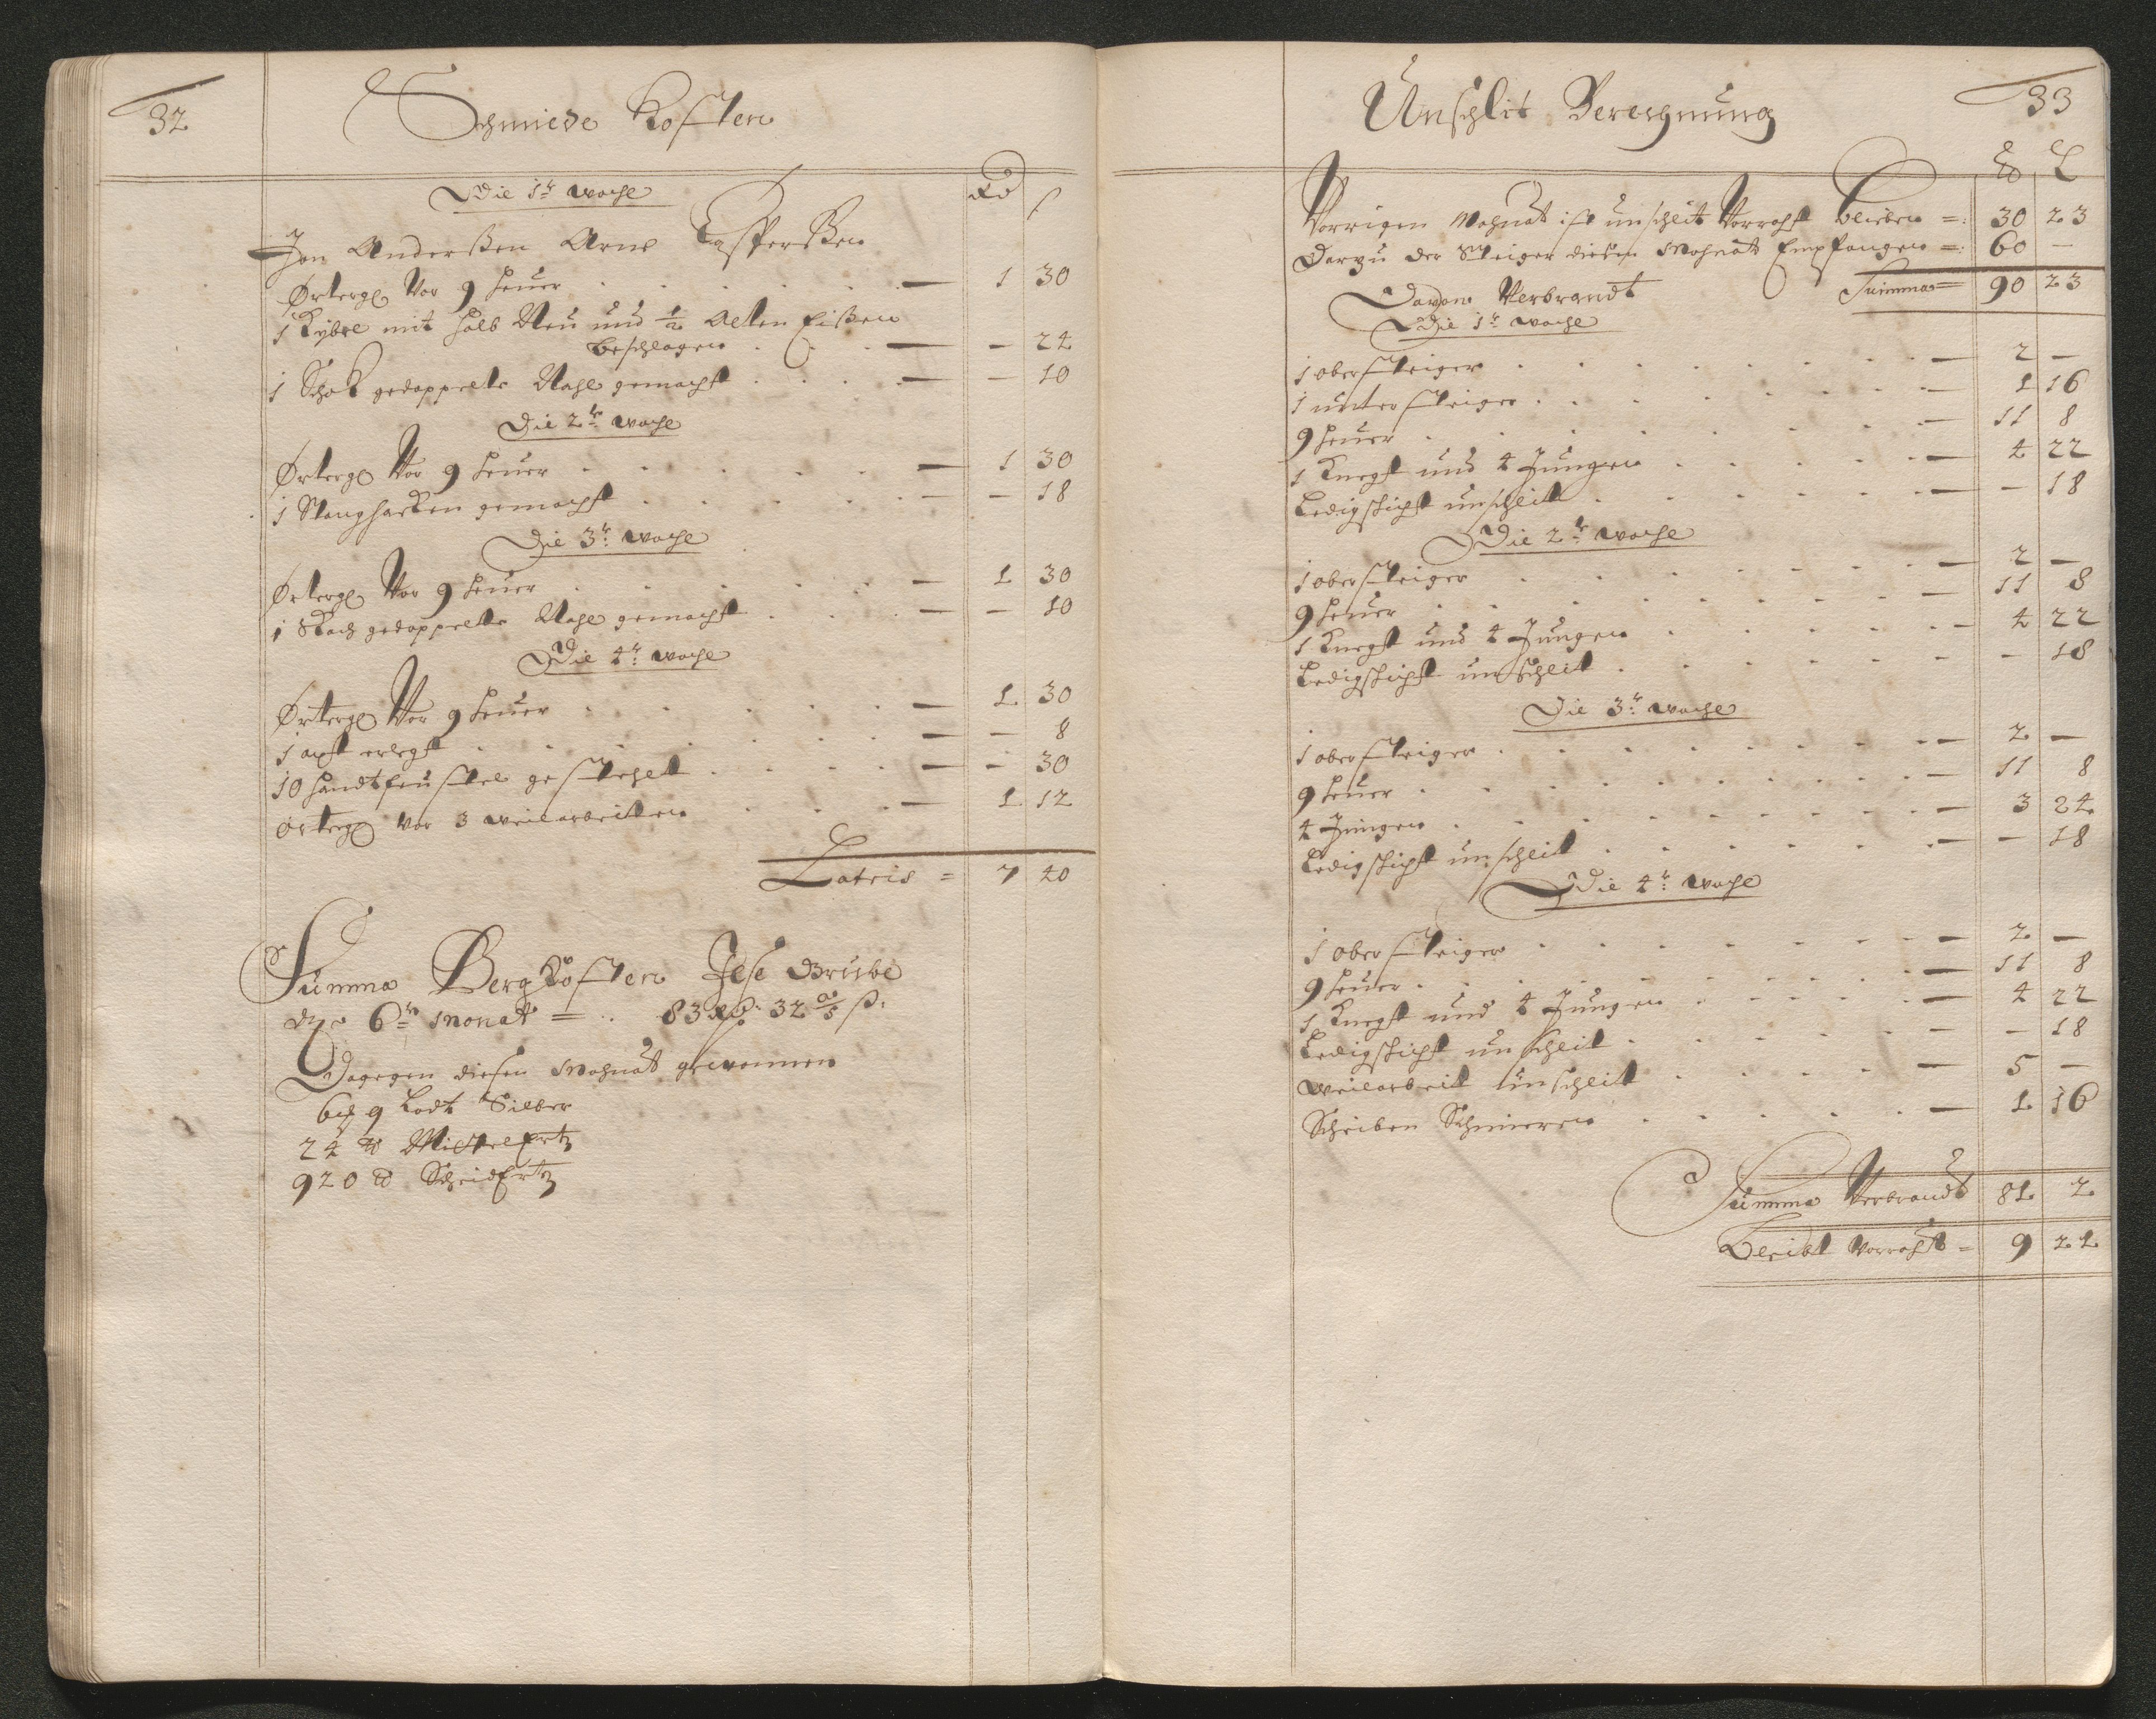 32
Schmiede Kosten
Rd ß
Die 1te woche
Jon Anderßen Arne Casperßen
Örterg Vor 9 heuer - 1 30
1 Kybel mit halb Neu und 1/2 Alten Eißen
beschlagen - - 24
1 Schok gedoppelte Nagl gemacht - - 10
Die 2te woche
Örterg Vor 9 heuer - 1 30
1 Stanghacken gemacht - - 18
Die 3te woche
Örterg Vor 9 heuer - 1 30
1 Schock gedoppelte Nagl gemacht - - 10
Die 4te woche
Örterg Vor 9 heuer - 1 30
1 axt erlegt - - 8
10 handtfeustel gestehelt - - 30
örterg vor 3 weilarbeiten - 1 12
Lateris = 7 40
Summa Berg Kosten Grube
6te Monat = 83 32
Dagegen diesen Mohnat gewonnen
6 9 Lodt Silber
24 ℔ Mittelertz
920 ℔ Scheidertz
33
Unschlit Berechnung
℔ L
Vorrigen Mohnat ist unschleit Vorraht blieben =: 30 23
Darzu der Steiger diesen Mohnat Empfangen =: 60 -
Summa = 90 23
Davon Verbrandt
Die 1te woche
1 obersteiger - 2 -
1 untersteiger - 1 16
9 heuer - 11 8
1 Knegt und 4 Jungen - 4 22
Ledigschicht unschleit - - 18
Die 2te woche
1 obersteiger - 2 -
9 heuer - 11 8
1 Knegt und 4 Jungen - 4 22
Ledigschicht unschleit - - 18
Die 3te woche
1 obersteiger - 2 -
9 heuer - 11 8
4 Jungen - 3 24
Ledigschicht unschleit - - 18
Die 4te woche
1 obersteiger - 2 -
9 heuer - 11 8
1 Knegt und 4 Jungen - 4 22
Ledigschicht unschleit - - 18
weilarbeit unschleit - 5 -
Scheiben Schmieren - 1 16
Summa Verbrandt 81 2
Bleibt Vorraht = 9 21